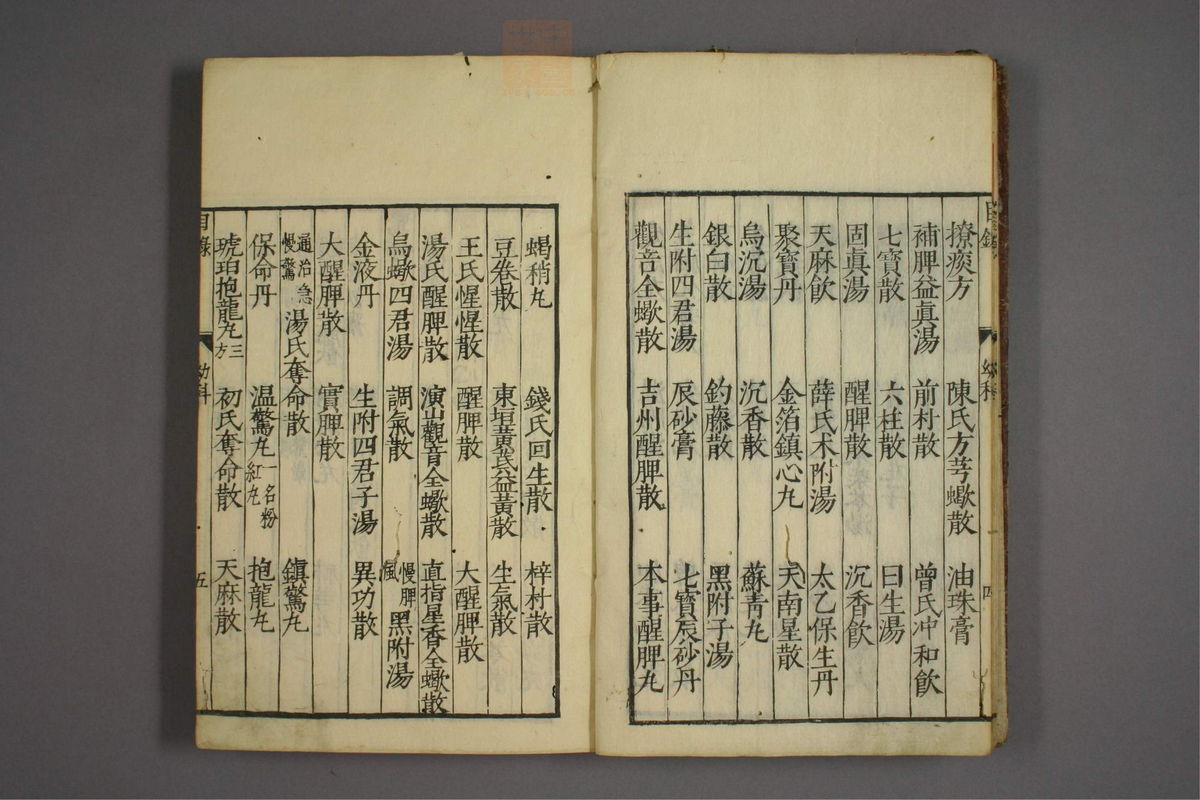 撩痰方 陳氏方芎蠍散 油珠膏
補脾益眞湯 前村散 曾氏冲和飮
七寶散 六柱散 日生湯
固眞湯 醒脾散 沉香飮
天麻飮 薛氏术附湯 太乙保生丹
聚寶丹 金箔鎮心丸 天南星散
烏沉湯 沉香散 蘇靑丸
銀白散 釣藤散 黑附子湯
生附四君湯 辰砂膏 七寶辰砂丹
觀音全蠍散 吉州醒脾散 本事醒脾丸
目錄 幼科 四
蝎稍丸 錢氏回生散 梓村散
豆卷散 東垣黃芪益黃散 生氣散
王氏惺惺散 醒脾散 大醒脾散
湯氏醒脾散 演山觀音全蠍散 直指星香全蠍散
烏蠍四君湯 調氣散 慢脾風黑附湯
金液丹 生附四君子湯 異功散
大醒脾散 實脾散
通治急慢驚湯氏奪命散 鎭驚丸
保命丹 温驚丸一名粉紅丸 抱龍丸
琥珀抱龍丸三方 初氏奪命散 天麻散
目錄 幼科 五